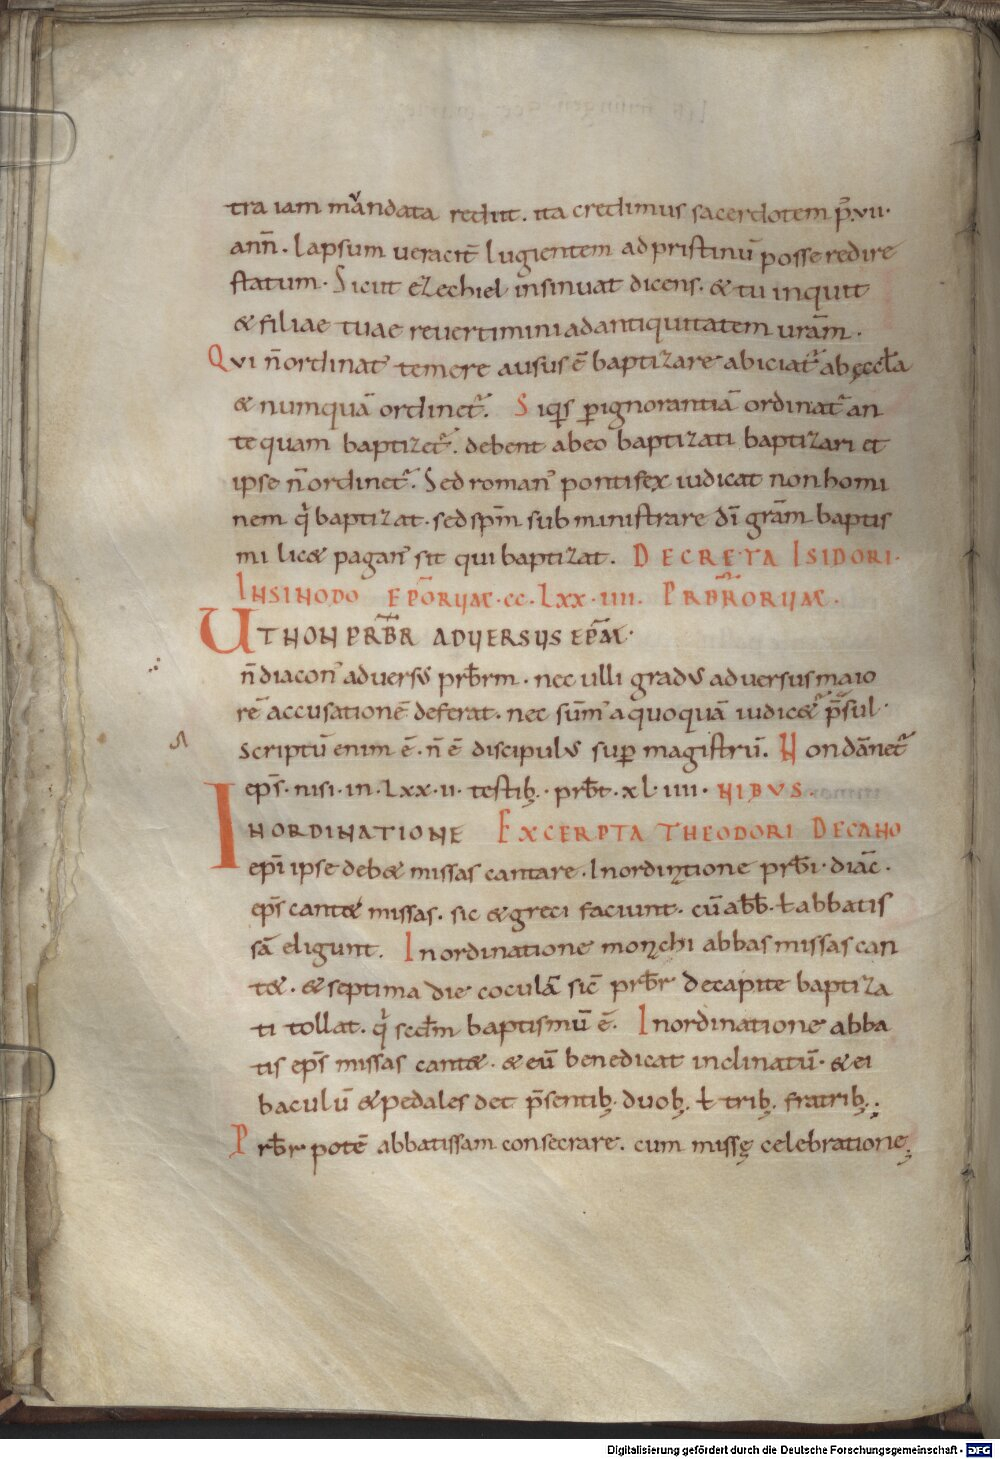 tra iam mandata rediit. ita credimus sacerdotem p̄. vii.
ann̄. lapsum ueracit̄ lugientem ad pristinū posse redire
statum. Sicut ezechiel insinuat dicens. & tu inquit
& filiae tuae reuertimini ad antiquitatem urām.
Qvi n̄ ordinat' temere ausus ē baptizare abiciat' ab ęccła
& numquā ordinet'. Siq̄s ꝑ ignorantiā ordinat' an
te quam baptizet'. debent ab eo baptizati baptizari et
ipse n̄ ordinet'. Sed roman' pontifex iudicat non homi
nem q̄ baptizat. sed sp̄m subministrare dī grām baptis
mi lic& pagan' sit qui baptizat. DECRETA ISIDORI.
IN SINODO EP̄ORUM. cc. Lxx. iiii. PRB̄RORUM.
UT NON PRB̄R ADUERSUS EP̄M.
n̄ diacon' aduersus prb̄rm. nec ulli gradus aduersus maio
rē accusationē deferat. nec sūm' a quoquā iudic&' p̄sul.
scriptū enim ē. n̄ ē discipulus sup̱ magistrū. Non dānet'
ep̄s. nisi. in. Lxx. ii. testib;. prb̄t. xl. iiii. NIBVS.
IN ORDINATIONE EXCERPTA THEODORI DE CANO
ep̄i ipse deb& missas cantare. In ordin̨tione prb̄i. diāc.
ep̄s cant& missas. sic & greci faciunt. cū abb̄. ł abbatis
sā eligunt. In ordinatione mon̨chi abbas missas can
t&. & septima die coculā sic̄ prb̄r de capite baptiza
ti tollat. q̄ scd̄m baptismū ē. In ordinatione abba
tis ep̄s missas cant&. & eū benedicat inclinatū. & ei
baculū & pedales det p̄sentib; duob; ł trib; fratrib;.
Prb̄r potē abbatissam consecrare. cum missę celebratione;
Digitalisierung gefördert durch die Deutsche Forschungsgemeinschaft - DFG